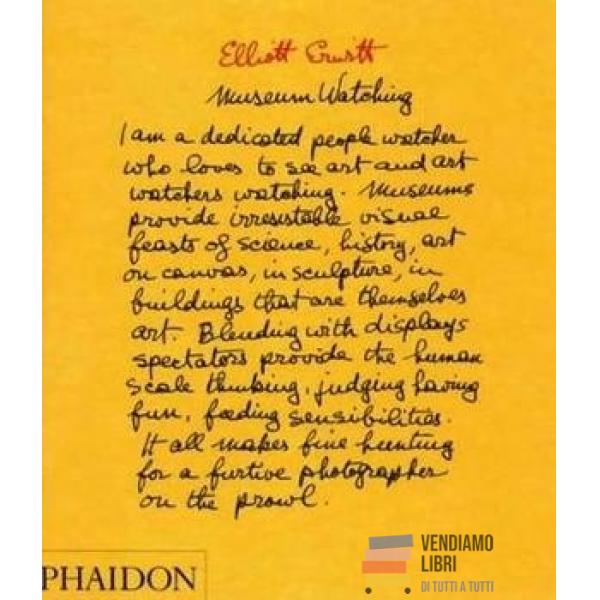 Elliott Erwitt
Museum Watching
I am a dedicated people watcher
who loves to see art and art
watchers watching. Museums
provide irresistable visual
feasts of science, history, art
on canvas, in sculpture, in
buildings that are themselves
art. Blending with displays
spectators provide the human
scale thinking, judging having
fun, feeding sensibilities.
It all makes fine hunting
for a furtive photographer
on the prowl.
PHAIDON
VENDIAMO
LIBRI
DI TUTTI A TUTTI